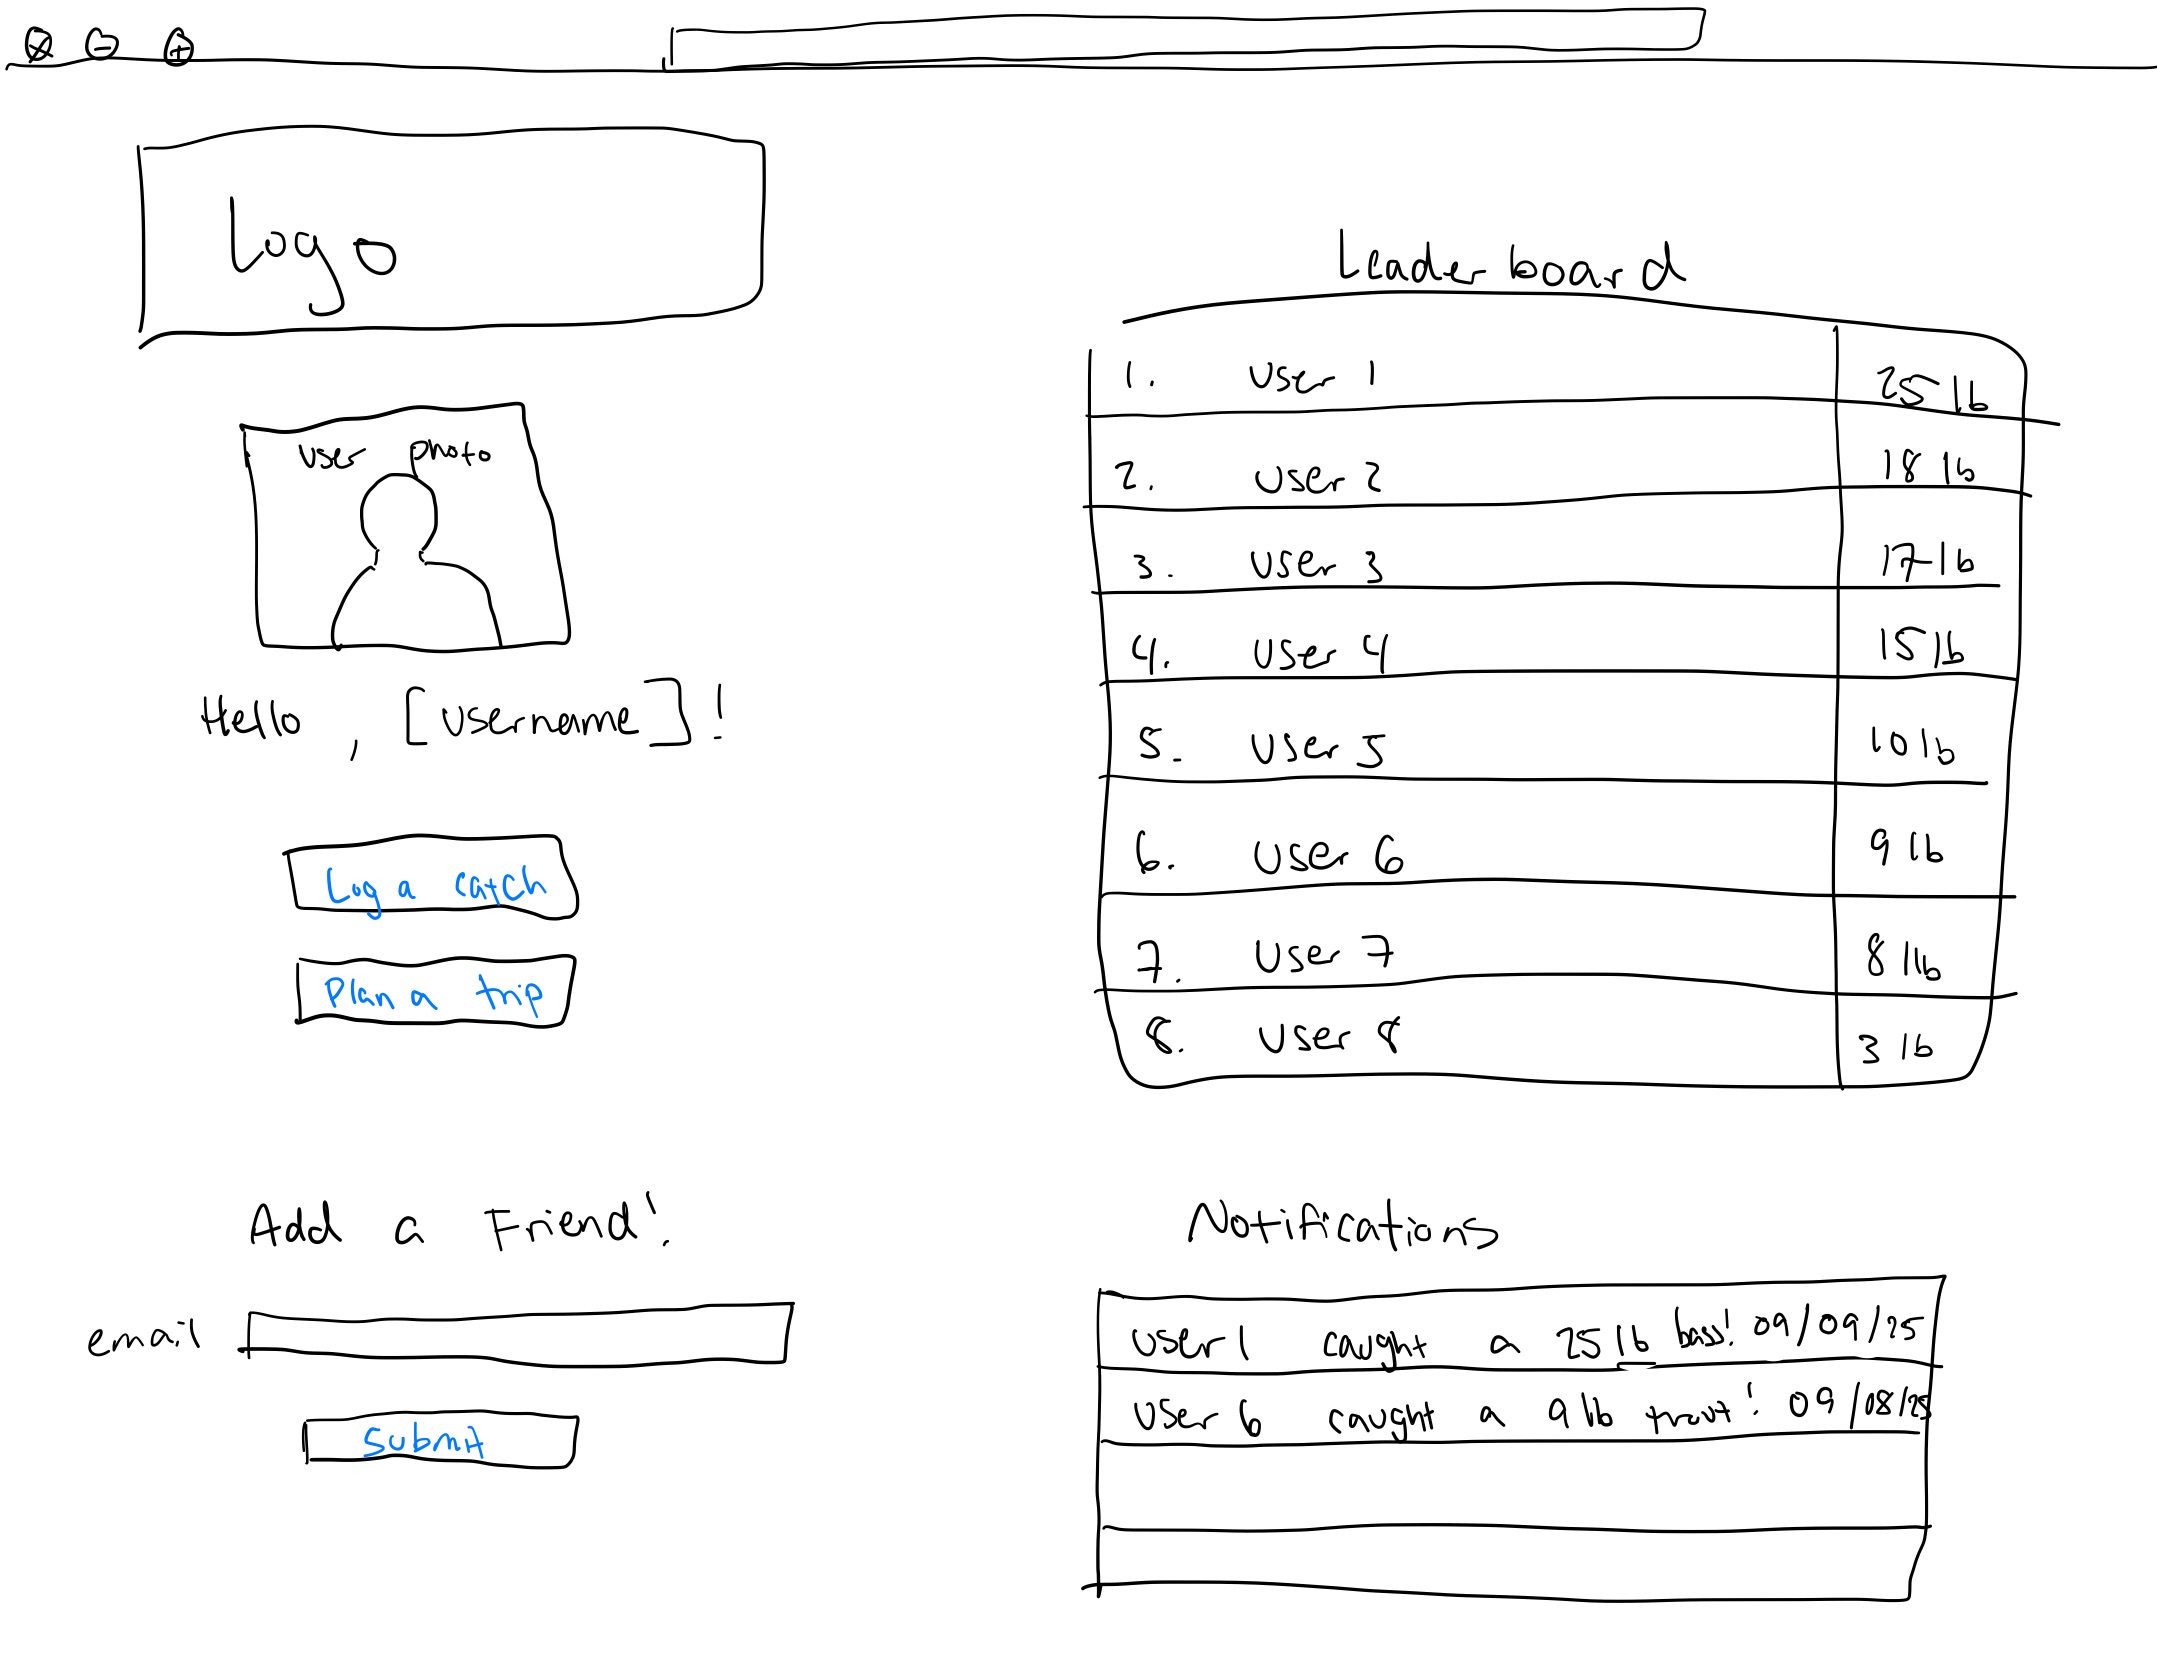 Logo
user photo
Hello, [Username]!
Log a catch
Plan a trip
Add a Friend!
email
Submit
Leaderboard
1. User 1 25 lb
2. User 2 18 lb
3. User 3 17 lb
4. User 4 15 lb
5. User 5 10 lb
6. User 6 9 lb
7. User 7 8 lb
8. User 8 3 lb
Notifications
User 1 caught a 25 lb bass! 09/09/25
User 6 caught a 9 lb trout! 09/08/25